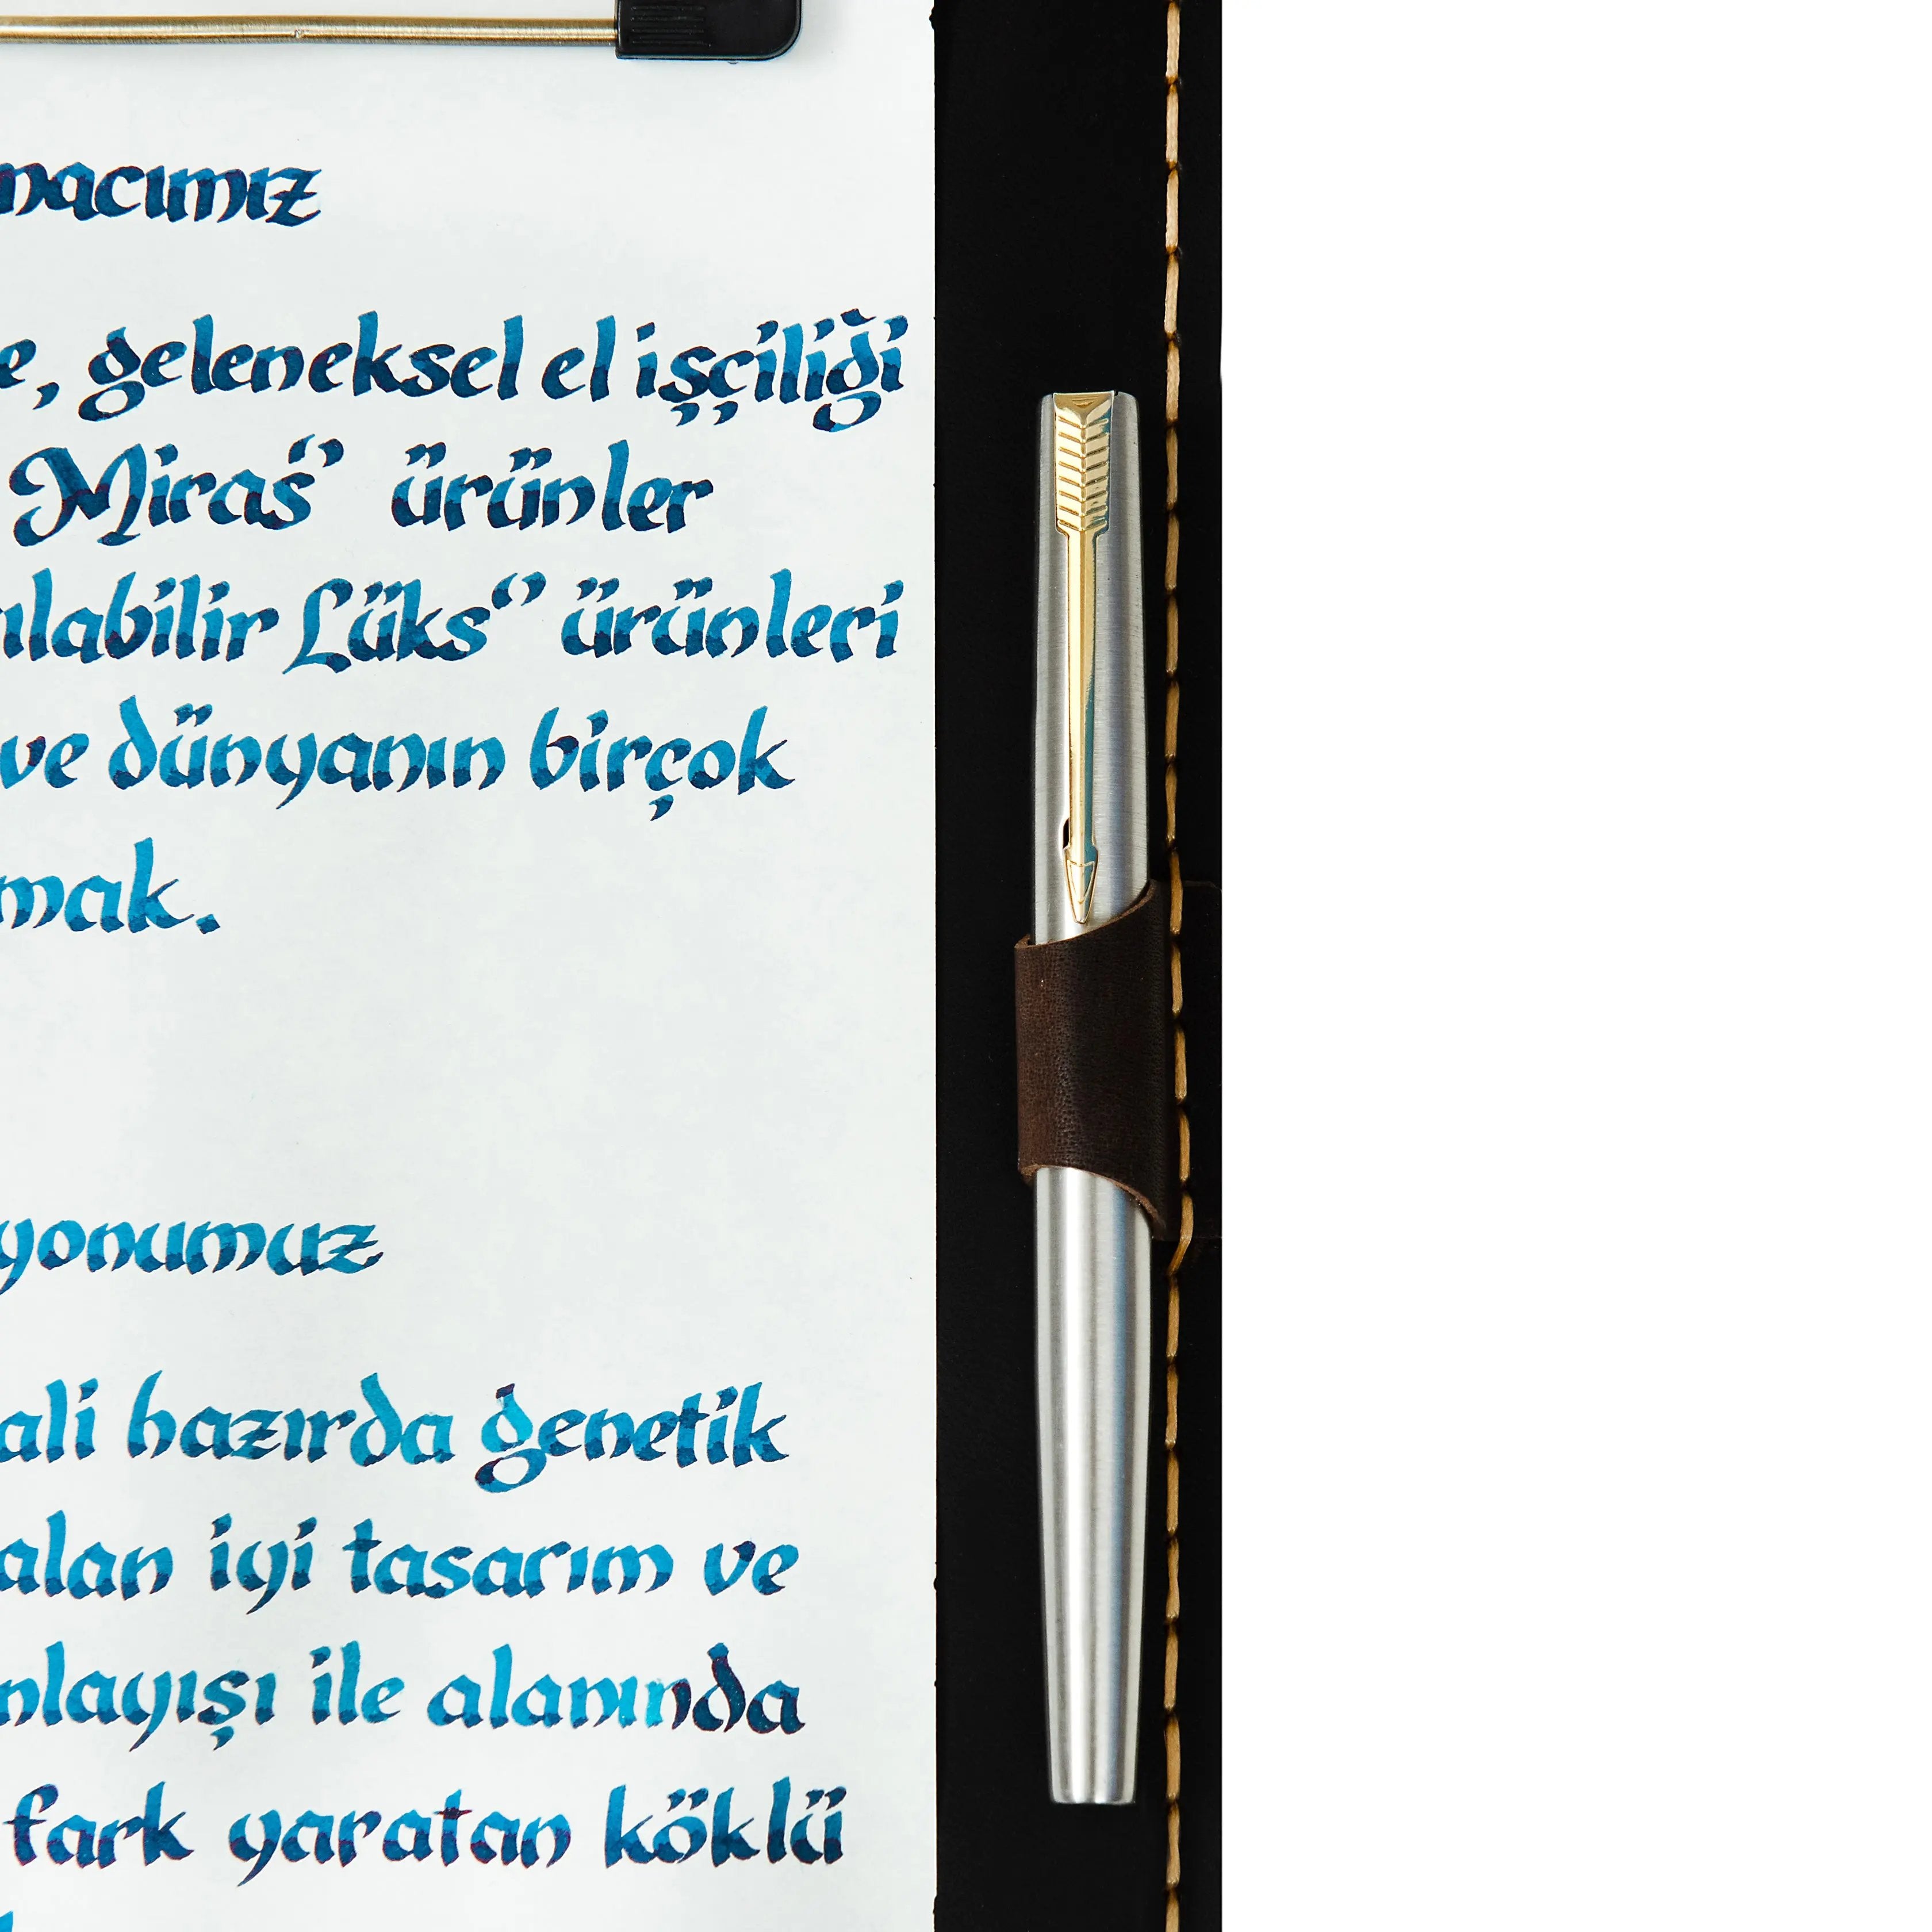 macımız
e, geleneksel el işçiliği
Miras“ ürünler
ılabilir Lüks“ ürünleri
ve dünyanın birçok
mak.
yonumuz
ali hazırda genetik
alan iyi tasarım ve
nlayışı ile alanında
fark yaratan köklü